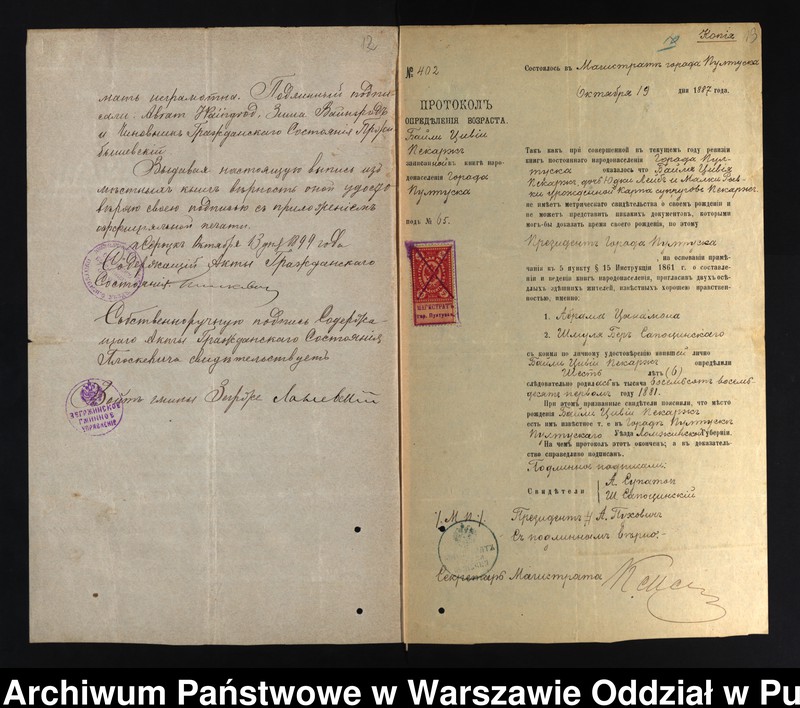 12
мать неграмотна. Подлинный подпи-
сали: Абрам
и Чиновник Гражданского Состояния
Выдавая настоящую выпись из
книг верность оной удосто
веряю своею подписью с приложением
оффициальной печати.
Октября 13 дня 1894 года
Содержащий Акты Гражданского
Состояния
Собственноручную подпись Содержа
щаго Акты Гражданского Состояния
свидетельствует
Войт гмины
Копія 13
№ 402
Состоялось въ Магистратѣ города Пултуска
Октября 19 дня 1887 года.
ПРОТОКОЛЪ
ОПРЕДѢЛЕНІЯ ВОЗРАСТА.
Байли Цивіи
Пекаржъ
записанной въ книгѣ наро-
донаселенія Города
Пултуска
подъ № 65.
МАГИСТРАТЪ
гор. Пултуска
Такъ какъ при совершенной въ текущемъ году ревизіи
книгъ постояннаго народонаселенія Города Пул-
туска оказалось что Байла Цивія
Пекаржъ, дочь Юдки Лейбъ и Малки
урожденной Карпа супруговъ Пекаржъ
не имѣетъ метрическаго свидѣтельства о своемъ рожденіи и
не можетъ представить никакихъ документовъ, которыми
могъ-бы доказать время своего рожденія, по этому
Президентъ Города Пултуска
, на основаніи примѣ-
чанія къ 5 пункту § 15 Инструкціи 1861 г. о составле-
ніи и веденіи книгъ народонаселенія, пригласивъ двухъ осѣ-
длыхъ здѣшнихъ жителей, извѣстныхъ хорошею нравствен-
ностью, именно:
1. Абрама
2. Шмуля Беръ Сапоцинскаго
съ коими по личному удостовѣренію явившейся лично
Байли Цивіи Пекаржъ опредѣлили
Шесть лѣтъ (6)
слѣдовательно родилась въ тысяча восемьсотъ восемь-
десятъ первомъ году 1881.
При этомъ призванные свидѣтели пояснили, что мѣсто
рожденія Байли Цивіи Пекаржъ
есть имъ извѣстное т. е въ Городѣ Пултускѣ
Пултускаго Уѣзда Ломжинской Губерніи.
На чемъ протоколъ этотъ оконченъ; а въ доказатель-
ство справедливо подписанъ.
Подлинное подписали:
Свидѣтели
А.
Ш. Сапоцинскій
/М. П./
Президентъ /-/ А. Пухович
Съ подлиннымъ вѣрно:-
Секретарь Магистрата
Archiwum Państwowe w Warszawie Oddział w Pu